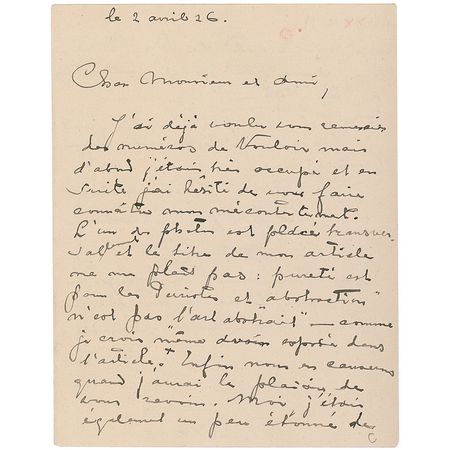 le 2 avril 26.
Cher Monsieur et Ami,
J'ai déjà voulu vous remercier
des numéros de Vouloir mais
d'abord j'étais très occupé et en
suite j'ai hésité de vous faire
connaître mon mécontentement.
L'un des photos est placé transver-
salement et le titre de mon article
ne me plaît pas : pureté est
pour les Puristes et abstraction"
n'est pas l'art abstrait" — comme
je crois même avoir exposé dans
l'article. + Enfin nous en causerons
quand j'aurai le plaisir de
vous revoir. Moi j'étais
également un peu étonné de